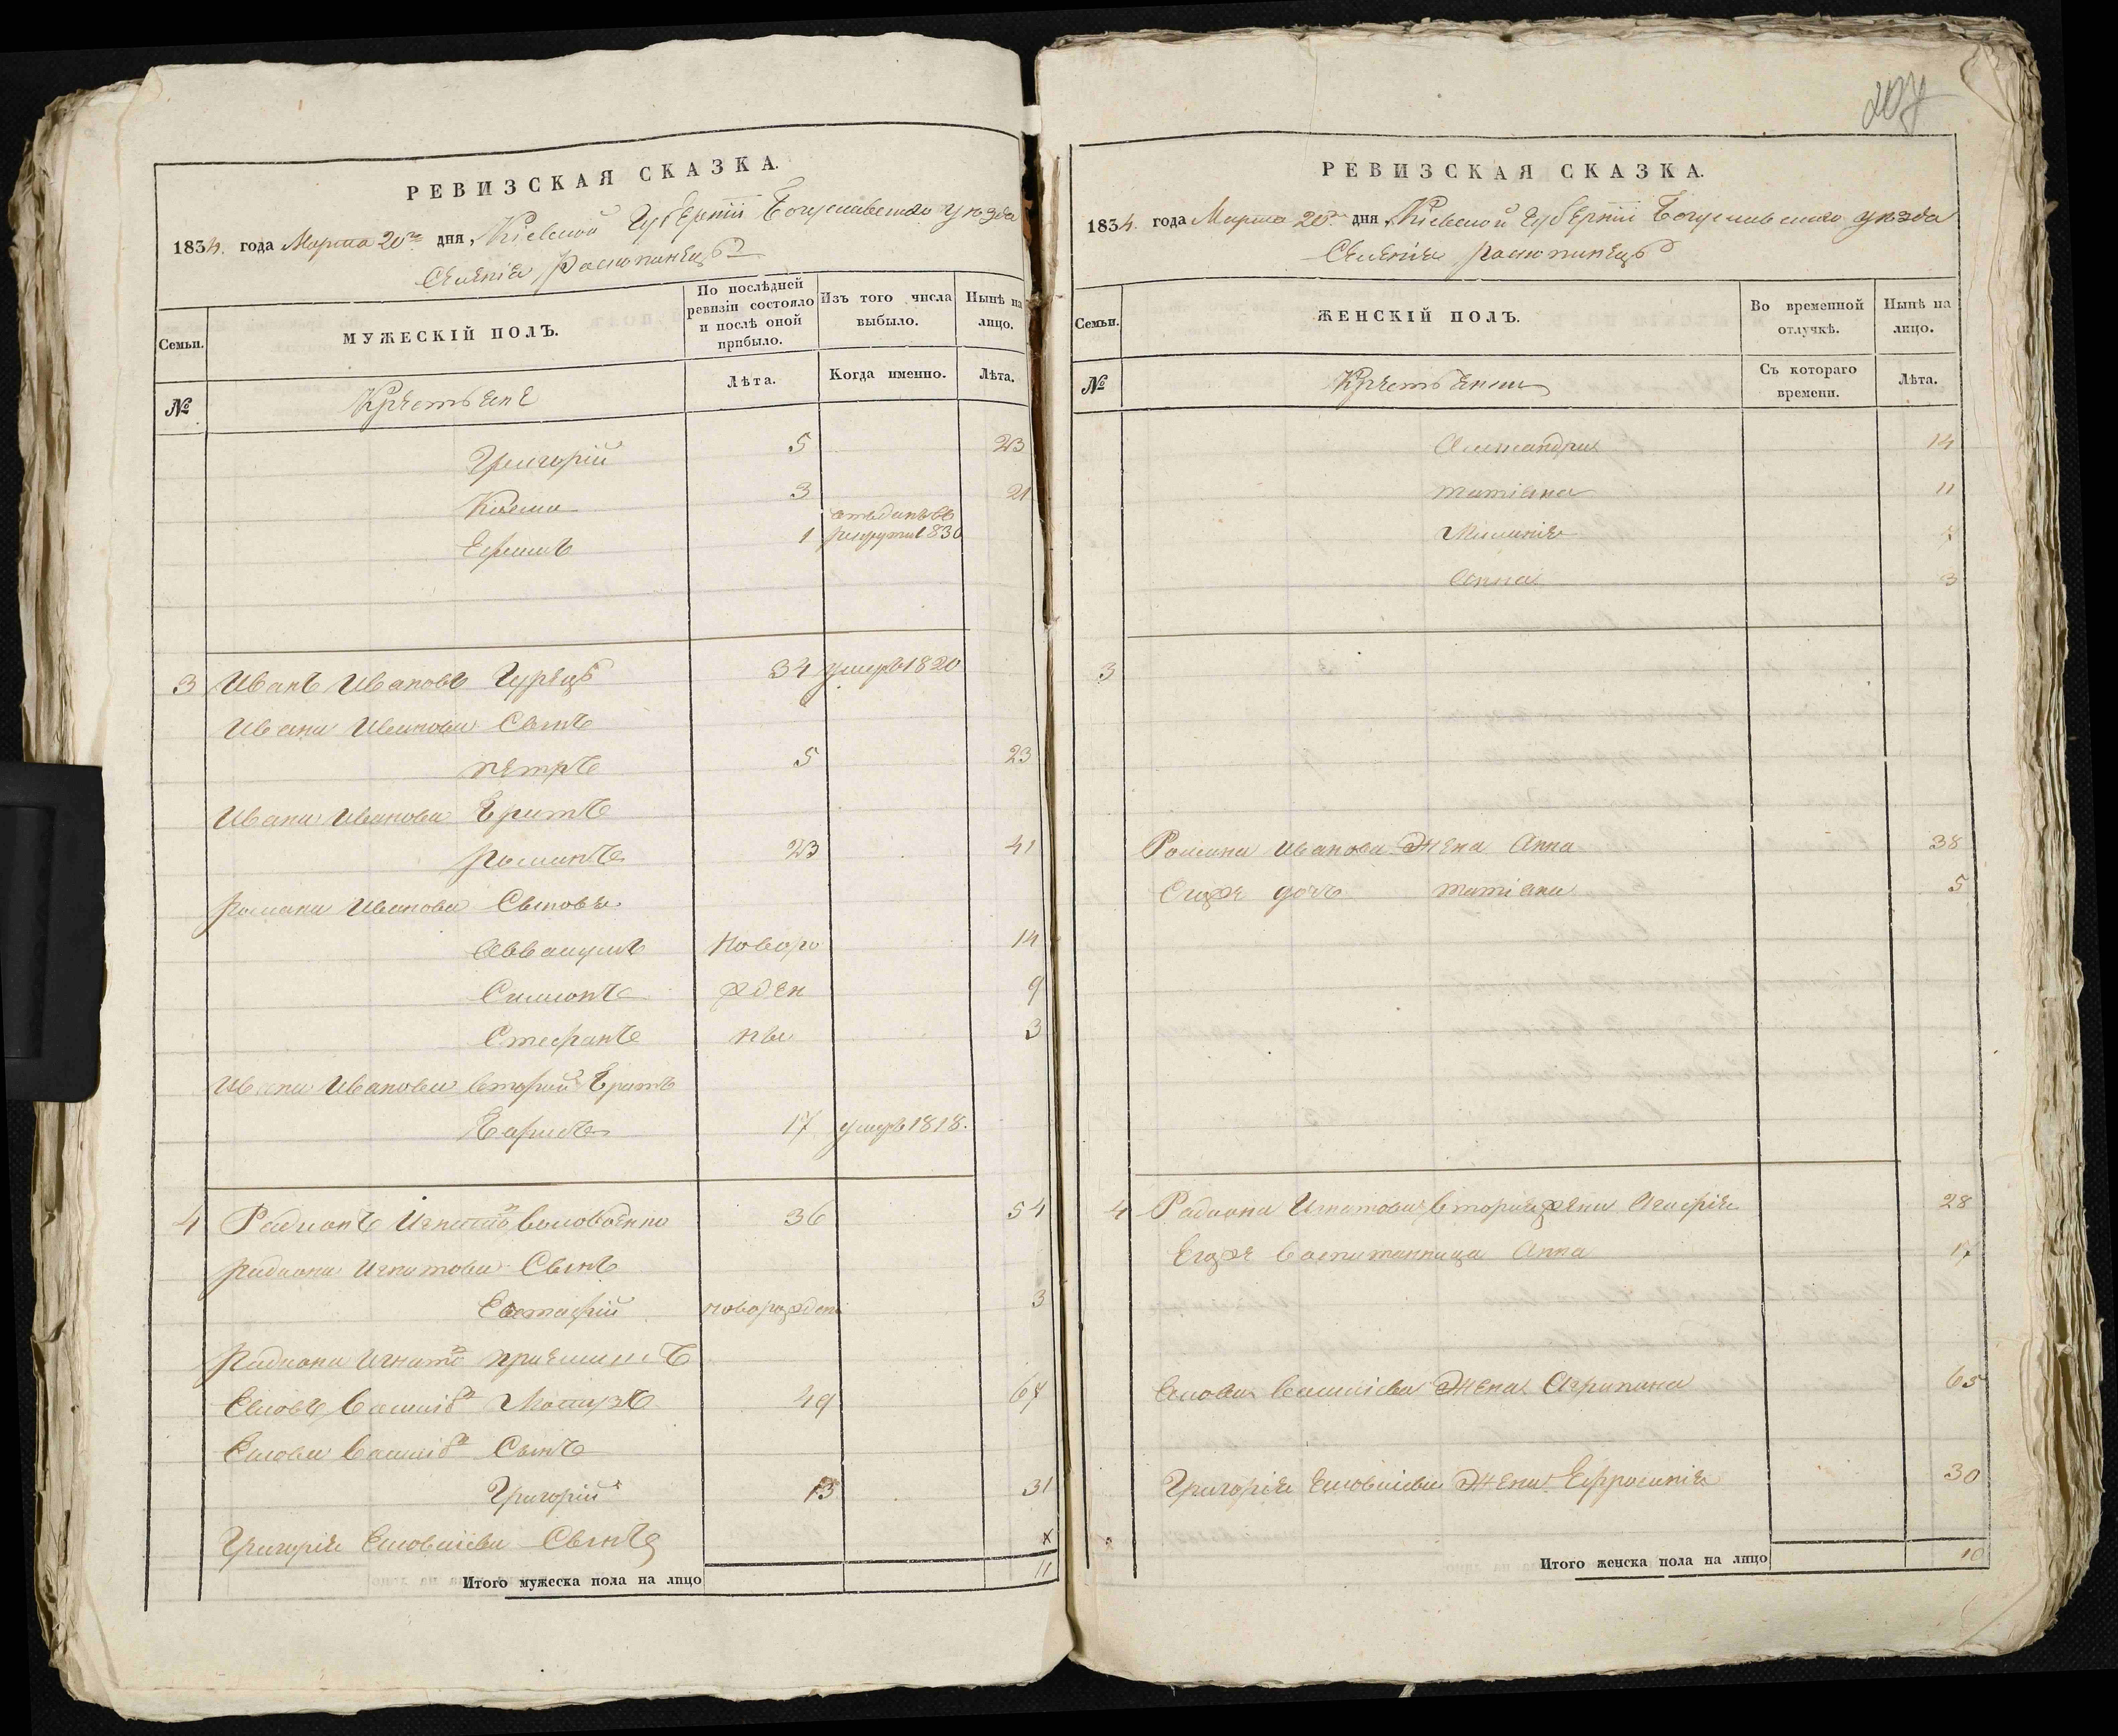 РЕВИЗСКАЯ СКАЗКА.
1834. года Марта 20го дня, Кіевской Губерніи Богуславскаго уѣзда
Селенія Расопинецъ
Семьи.
МУЖЕСКІЙ ПОЛЪ.
По послѣдней ревизіи состояло и послѣ оной прибыло.
Изъ того числа выбыло.
Нынѣ на лицо.
№
Крестьяне
Лѣта.
Когда именно.
Лѣта.
Григорій 5 23
Козма 3 21
отъданъ въ
Ефимъ 1 рекруты 830
3 Иванъ Ивановъ Гурецъ 34 умеръ 1820
Ивана Иванова Сынъ
Петръ 5 23
Ивана Иванова Братъ
Романъ 23 41
Романа Иванова Сыновья
Аввакумъ Новоро 14
Симионъ жден 9
Стефанъ ны 3
Ивана Иванова вторий Братъ
17 умеръ 1818.
4 Радионъ Игнатов 36 54
Радиона Игнатова Сынъ
Евстафій новорожден 3
Радиона Игнатов приемишъ
Васильев 49 67
Васильев Сынъ
Григорій 13 31
Григорія Сынъ
х
Итого мужеска пола на лицо 11
207
РЕВИЗСКАЯ СКАЗКА.
1834. года Марта 20го дня, Кіевской Губерніи Богуславскаго уѣзда
Селенія Расопинецъ
Семьи.
ЖЕНСКІЙ ПОЛЪ.
Во временной отлучкѣ.
Нынѣ на лицо.
№
Крестьянки
Съ котораго времени.
Лѣта.
Александра 14
Татіана 11
Меланія
Анна 3
3
Романа Иванова Жена Анна 38
Егоже дочь Татіана 5
4 Радиона Игнатова вторая жена Агафія 28
Егоже воспитанница Анна 17
Васильева Жена Агрипина 65
Григорія Жена Ефросинія 30
Итого женска пола на лицо 10